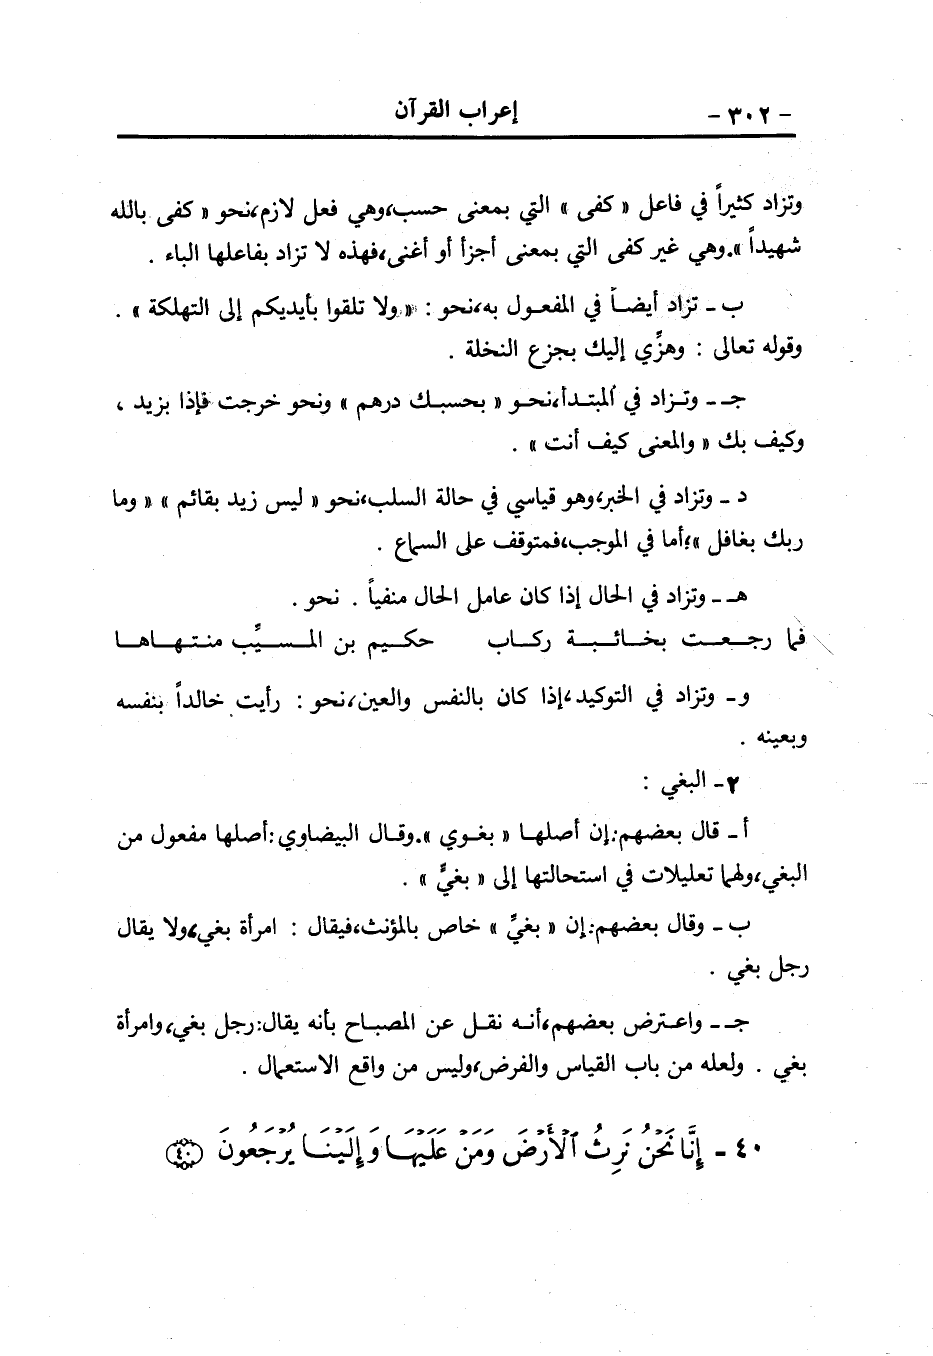 - ٣٠٢ -
إعراب القرآن
وتزاد كثيراً في فاعل « كفى » التي بمعنى حسب،وهي فعل لازم،نحو « كفى بالله
شهيداً ».وهي غير كفى التي بمعنى أجزأ أو أغنى،فهذه لا تزاد بفاعلها الباء .
ب ـ تزاد أيضاً في المفعول به،نحو : « ولا تلقوا بأيديكم إلى التهلكة » .
وقوله تعالى : وهزِّي إليك بجزع النخلة .
جـ ـ وتزاد في المبتدأ،نحو « بحسبك درهم » ونحو خرجت فإذا بزيد ،
وكيف بك « والمعنى كيف أنت » .
د ـ وتزاد في الخبر،وهو قياسي في حالة السلب،نحو « ليس زيد بقائم » « وما
ربك بغافل »؛أما في الموجب،فمتوقف على السماع .
هـ ـ وتزاد في الحال إذا كان عامل الحال منفياً . نحو .
فما رجعت بخائبة ركاب حكيم بن المسيَّب منتهاها
و ـ وتزاد في التوكيد،إذا كان بالنفس والعين،نحو : رأيت خالداً بنفسه
وبعينه .
٢ ـ البغي :
أ ـ قال بعضهم:إن أصلها « بغوي ».وقال البيضاوي:أصلها مفعول من
البغي،ولهما تعليلات في استحالتها إلى « بغيٍّ » .
ب ـ وقال بعضهم:إن « بغيٍّ » خاص بالمؤنث،فيقال : امرأة بغي،ولا يقال
رجل بغي .
جـ ـ واعترض بعضهم،أنه نقل عن المصباح بأنه يقال:رجل بغي،وامرأة
بغي . ولعله من باب القياس والفرض،وليس من واقع الاستعمال .
٤٠ ـ إِنَّا نَحْنُ نَرِثُ ٱلْأَرْضَ وَمَنْ عَلَيْهَا وَإِلَيْنَا يُرْجَعُونَ ﴿٤٠﴾